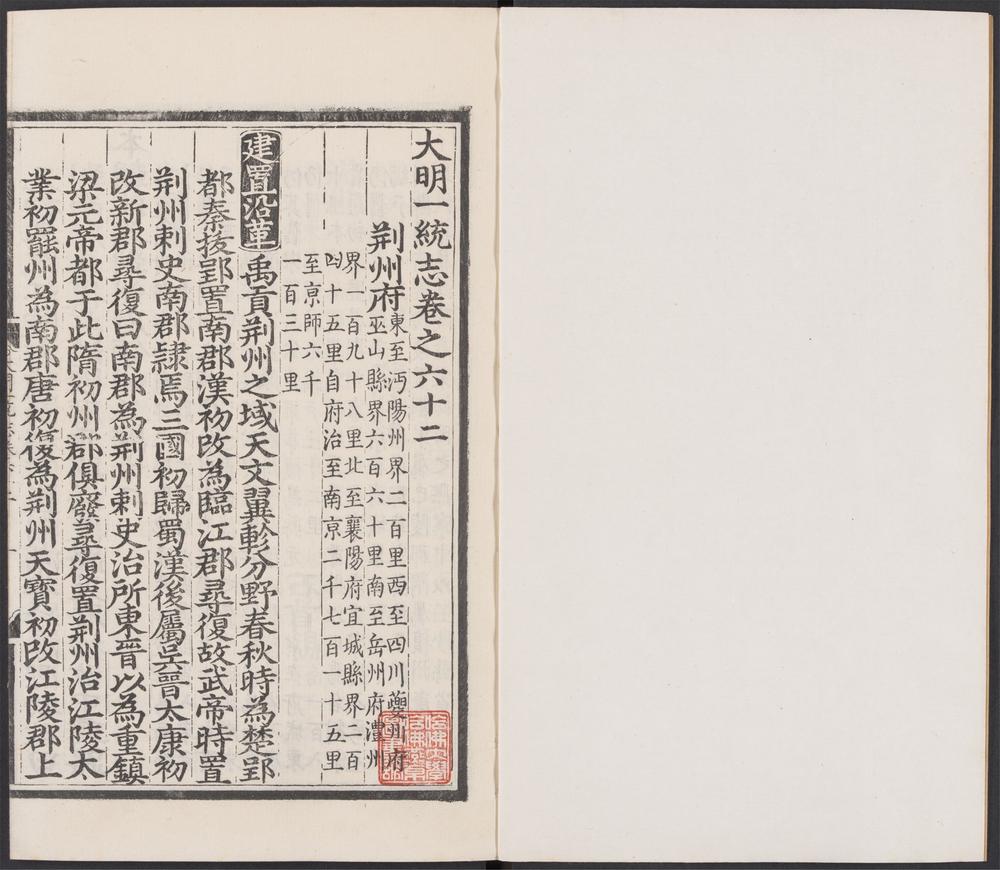 大明一統志卷之六十二
荆州府
東至沔陽州界二百里西至四川夔州府
巫山縣界六百六十里南至岳州府澧州
界一百九十八里北至襄陽府宜城縣界二百
四十五里自府治至南京二千七百一十五里
至京師六千
一百三十里
建置沿革 禹貢荆州之域天文翼軫分野春秋時為楚郢
都秦拔郢置南郡漢初改為臨江郡尋復故武帝時置
荆州刺史南郡隸焉三國初歸蜀漢後屬吳晉太康初
改新郡尋復曰南郡為荆州刺史治所東晉以為重鎮
梁元帝都于此隋初州郡俱廢尋復置荆州治江陵大
業初罷州為南郡唐初復為荆州天寶初改江陵郡上